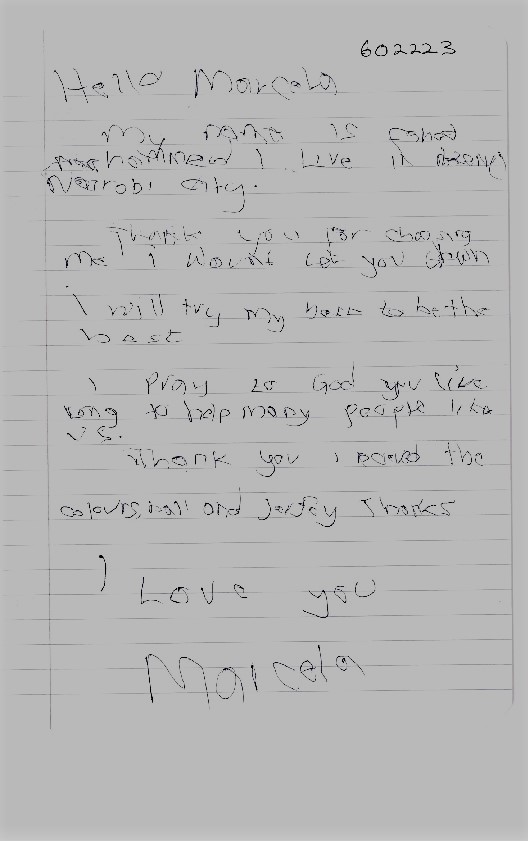 602223
Hello Marcela
My name is
mohammed I Live in
Nairobi city.
Thank you for choosing
me I wount let you down
I will try my best to be the
best
I Pray to God you live
long to help many people like
us.
Thank you I the
colours, ball and Jersey Thanks
I
Love you
Marcela